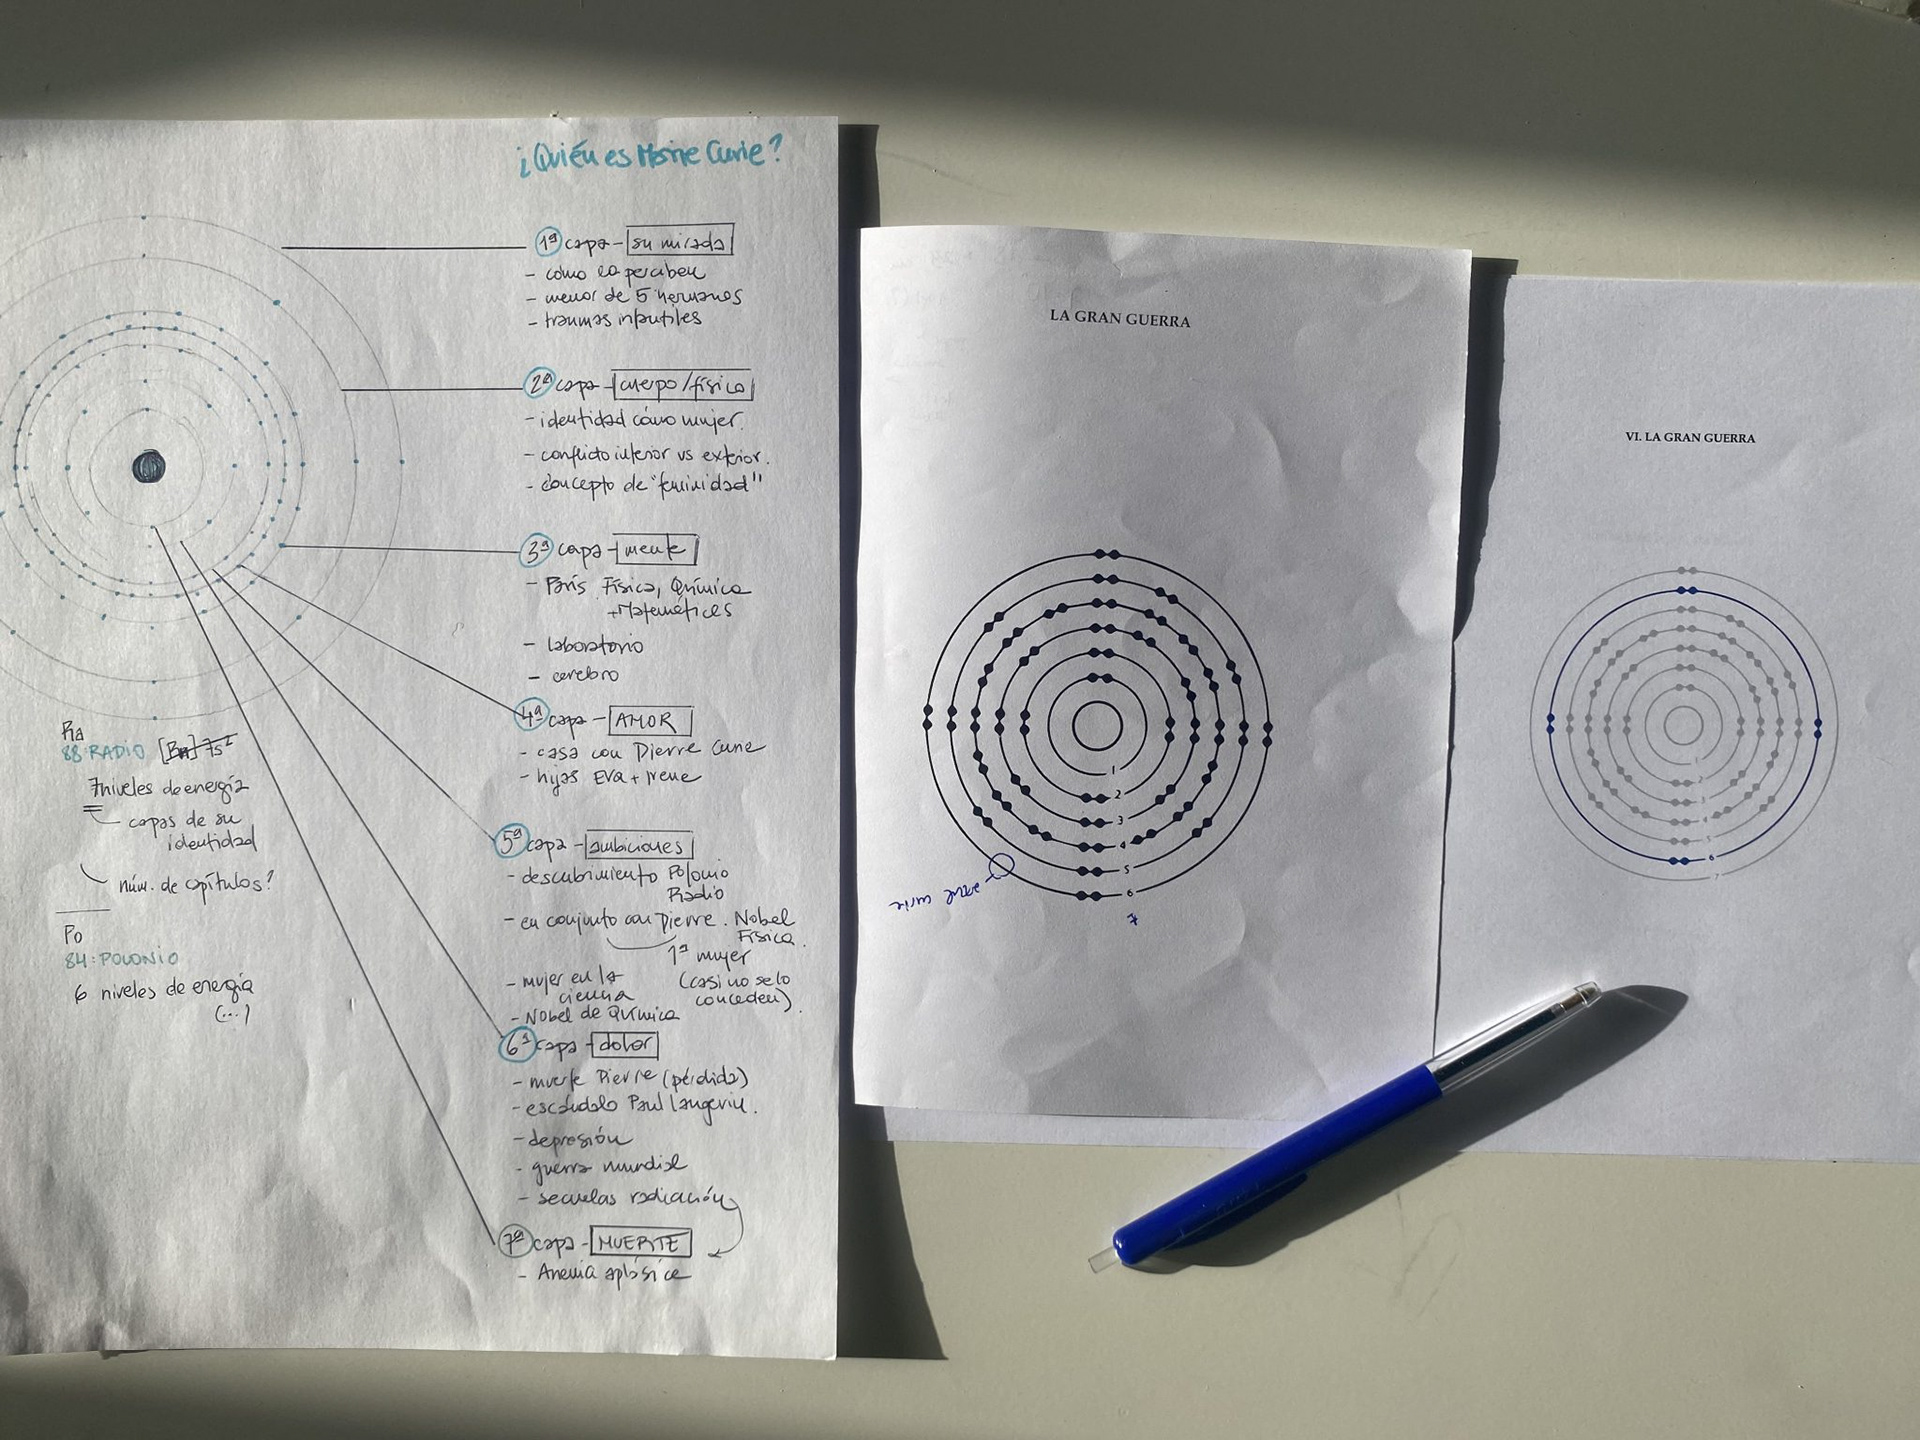 ¿Quién es Marie Curie?
1ª capa - su mirada
- cómo la perciben
- menor de 5 hermanos
- traumas infantiles
2ª capa - cuerpo/físico
- identidad cómo mujer.
- conflicto interior vs exterior.
- concepto de "feminidad"
3ª capa - mente
- París Física, Química
+Matemáticas
- laboratorio
- cerebro
4ª capa - AMOR
- casa con Pierre Curie
- hijas Eva + Irene
5ª capa - ambiciones
- descubrimiento Polonio
Radio
- en conjunto con Pierre. Nobel
Física.
1ª mujer
(casi no se lo
conceden).
- mujer en la
ciencia
- Nobel de Química
6ª capa - dolor
- muerte Pierre (pérdida)
- escándalo Paul Langevin.
- depresión
- guerra mundial
- secuelas radiación
7ª capa - MUERTE
- Anemia aplásica
Ra
88: RADIO [Rn] 7s²
7 niveles de energía
capas de su
identidad
núm. de capítulos?
Po
84: POLONIO
6 niveles de energía
(...)
LA GRAN GUERRA
1
2
3
4
5
6
azul curie
VI. LA GRAN GUERRA
1
2
3
4
5
6
7